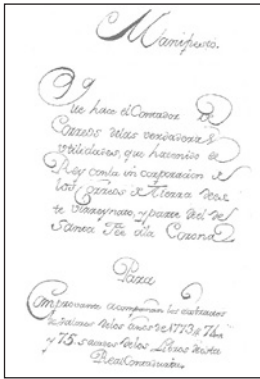 Manifiesto.
Que hace el Contador de
Correos de las verdaderas
utilidades, que ha tenido el
Rey con la incorporacion de
los Correos de Tierra de es
te Virreynato, y parte del de
Santa Feé á la Corona
Para
Comprovante acompañan los extractos
de los años de 1773 74
y 75. sacados de los Libros de esta
Real Contaduria.